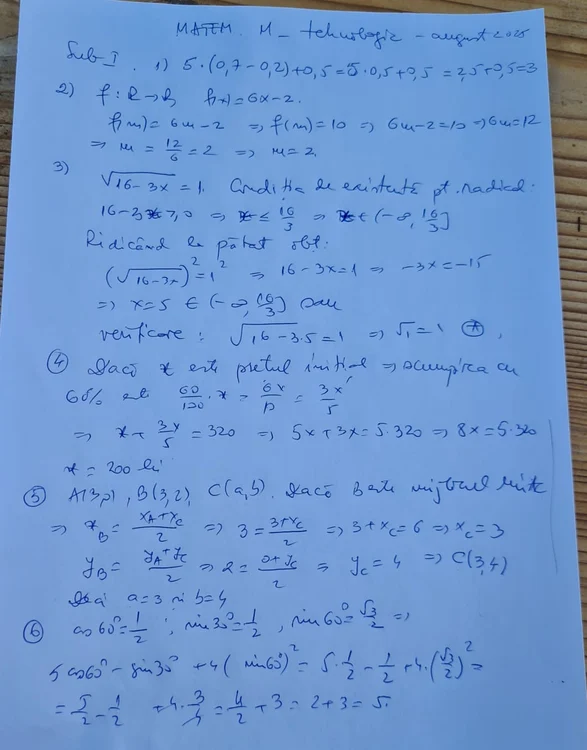 MATEM. M_ tehnologic - august 2025
Sub I. 1) 5·(0,7-0,2)+0,5=5·0,5+0,5=2,5+0,5=3
2) f: R→R f(x)=6x-2.
f(m)=6m-2 ⇒ f(m)=10 ⇒ 6m-2=10 ⇒ 6m=12
⇒ m = 12/6 = 2 ⇒ m=2.
3) √(16-3x) = 1. Condiția de existență pt. radical:
16-3x≥0 ⇒ x ≤ 16/3 ⇒ x∈(-∞, 16/3]
Ridicând la pătrat obț:
(√(16-3x))²=1² ⇒ 16-3x=1 ⇒ -3x=-15
⇒ x=5 ∈ (-∞, 16/3] sau
verificare: √(16-3·5)=1 ⇒ √1=1 (A),
(4) Dacă x este prețul inițial ⇒ scumpirea cu
60% este 60/100·x = 6x/10 = 3x/5
⇒ x+3x/5=320 ⇒ 5x+3x=5·320 ⇒ 8x=5·320
x=200 lei
(5) A(3,0), B(3,2), C(a,b). Dacă B este mijlocul
⇒ x_B = (x_A+x_C)/2 ⇒ 3=(3+x_C)/2 ⇒ 3+x_C=6 ⇒ x_C=3
y_B = (y_A+y_C)/2 ⇒ 2=(0+y_C)/2 ⇒ y_C=4 ⇒ C(3,4)
Deci a=3 și b=4
(6) cos60°=1/2; sin30°=1/2, sin60°=√3/2 ⇒
5cos60°-sin30°+4(sin60°)²=5·1/2-1/2+4·(√3/2)²=
=5/2-1/2+4·3/4=4/2+3=2+3=5.